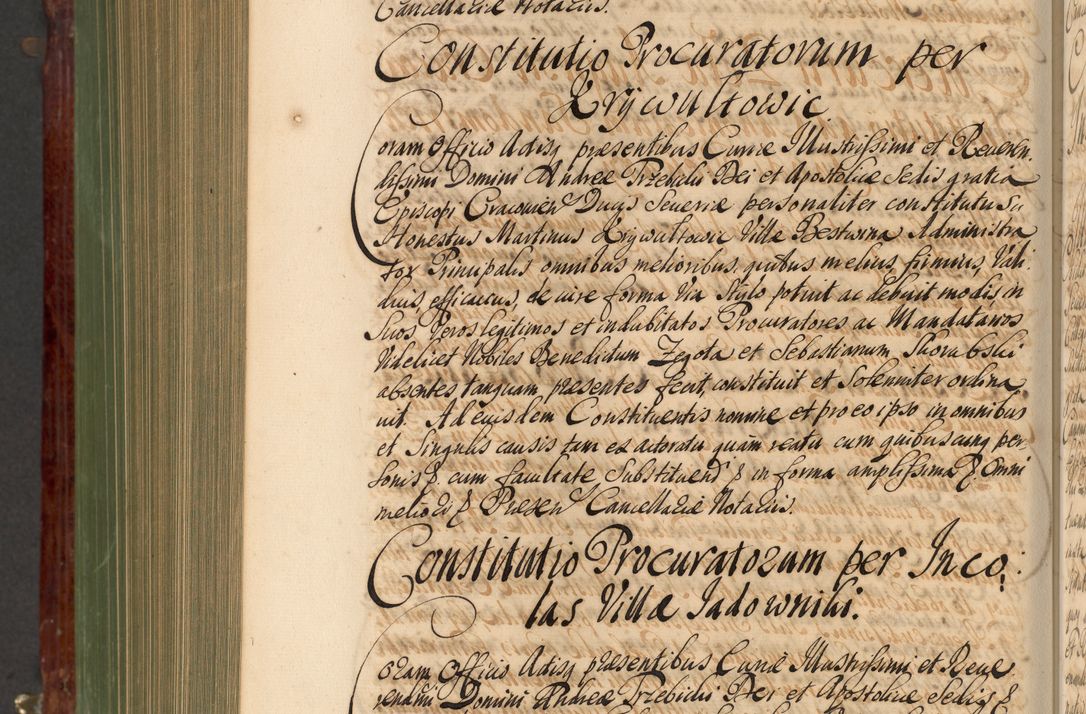 Cancellariæ Notariis.
Constitutio Procuratorum per
Krzywultowic
Coram Officio Actisq præsentibus Curiæ Illustrissimi et Reveren
dissimi Domini Andreæ Trzebicki Dei et Apostolicæ Sedis gratia
Episcopi Cracovien Ducis Severiæ personaliter constitutus
Honestus Martinus Krzywultowic Villæ Bestwina Administra
tor Principalis omnibus melioribus, quibus melius, firmius, Vali
dius, efficacius, de iure forma Via Stylo potuit ac debuit modis, in
Suos Veros legitimos et indubitatos Procuratores ac Mandatarios
Videlicet Nobiles Benedictum Zegota et Sebastianum Skorubski
absentes tanquam præsentes fecit, constituit et Solenniter ordina
uit. Ad eiusdem Constituentis nomine et pro eo ipso in omnibus
et Singulis causis tam ex actoratu quàm reatu cum quibuscunq per
sonis &. cum facultate Substituen & in forma amplissima &. Omni
meliori & Præsen Cancellariæ Notariis.
Constitutio Procuratorum per Inco,
las Villæ Jadowniki.
Coram Officio Actisq præsentibus Curiæ Illustrissimi et Reve
rendimi Domini Andreæ Trzebicki Dei et Apostolicæ Sedis &